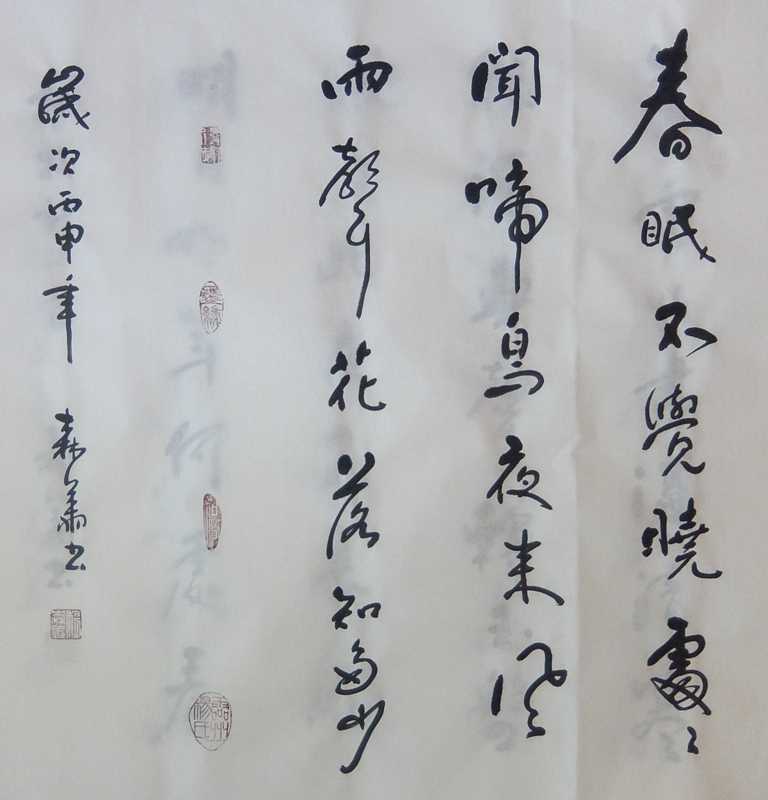 春眠不覺曉處々
聞啼鳥夜来風
雨聲花落知多少
歲次丙申年 森書